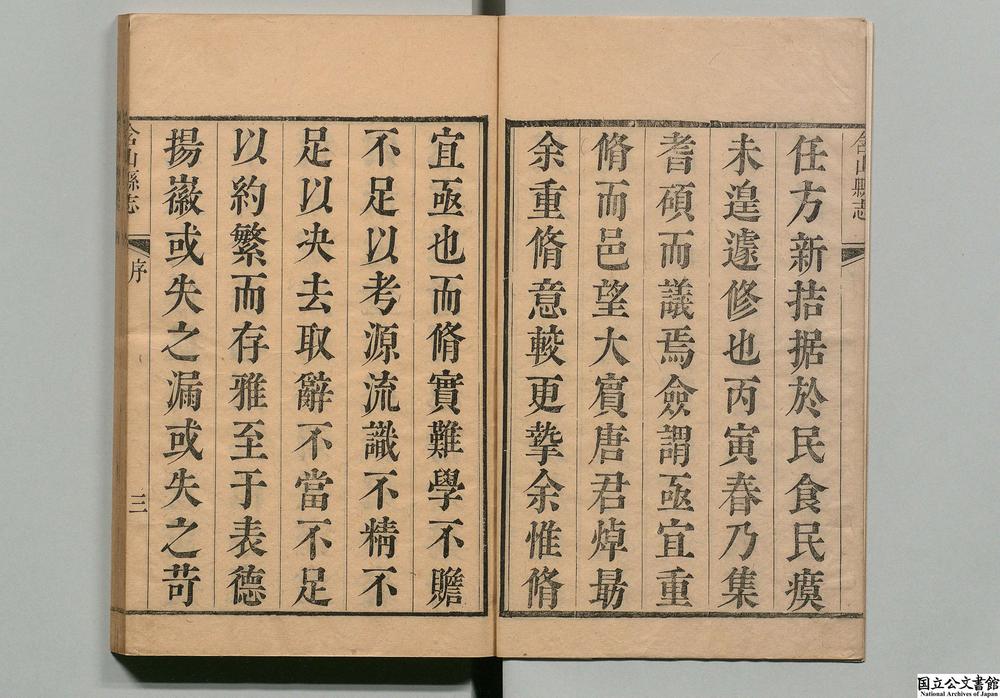 含山縣志
任方新拮据於民食民瘼
未遑遽修也丙寅春乃集
耆碩而議焉僉謂亟宜重
脩而邑望大賓唐君焯勗
余重脩意較更摯余惟脩
宜亟也而脩實難學不贍
不足以考源流識不精不
足以决去取辭不當不足
以約繁而存雅至于表德
揚徽或失之漏或失之苛
含山縣志
序
三
国立公文書館
National Archives of Japan